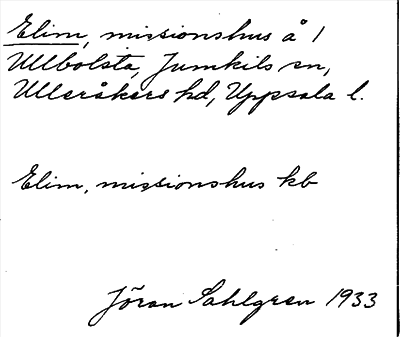 Elim, missionshus å 1
Ullbolsta, Jumkils sn,
Ulleråkers hd, Uppsala l.
Elim, missionshus kb
Jöran Sahlgren 1933